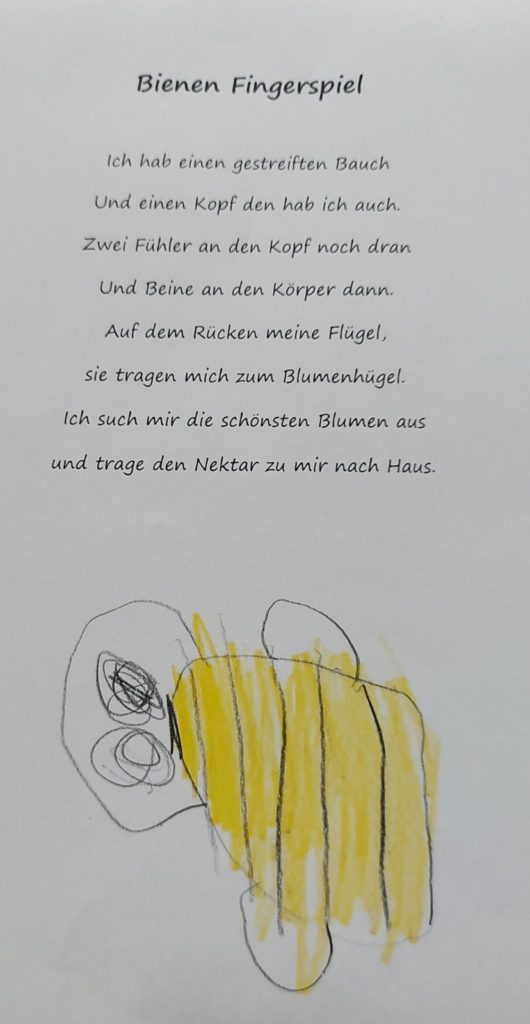 Bienen Fingerspiel
Ich hab einen gestreiften Bauch
Und einen Kopf den hab ich auch.
Zwei Fühler an den Kopf noch dran
Und Beine an den Körper dann.
Auf dem Rücken meine Flügel,
sie tragen mich zum Blumenhügel.
Ich such mir die schönsten Blumen aus
und trage den Nektar zu mir nach Haus.